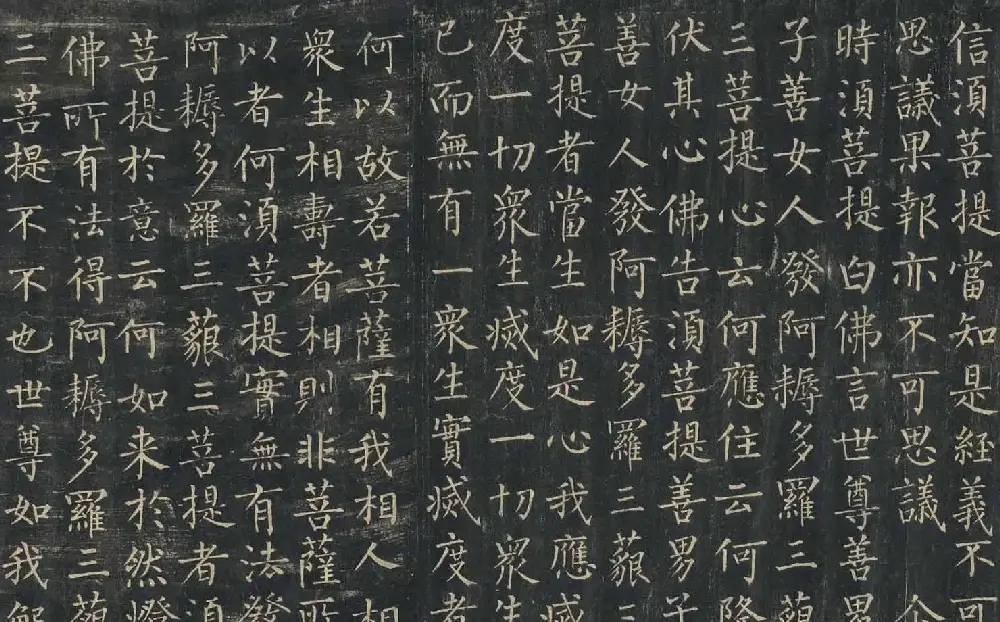 信湏菩提當知是経義不可
思議果報亦不可思議
時湏菩提白佛言世尊善男
子善女人發阿耨多羅三藐
三菩提心云何應住云何降
伏其心佛告湏菩提善男子
善女人發阿耨多羅三藐三
菩提者當生如是心我應滅
度一切衆生滅度一切衆生
已而無有一衆生實滅度者
何以故若菩薩有我相人相
衆生相壽者相則非菩薩所
以者何湏菩提實無有法發
阿耨多羅三藐三菩提者湏
菩提於意云何如来於然燈
佛所有法得阿耨多羅三藐
三菩提不不也世尊如我解